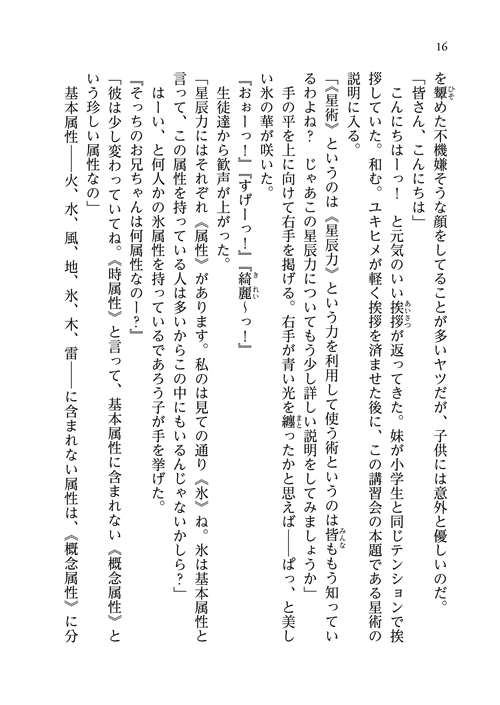 16
を顰めた不機嫌そうな顔をしてることが多いヤツだが、子供には意外と優しいのだ。
「皆さん、こんにちは」
こんにちはーっ！　と元気のいい挨拶が返ってきた。妹が小学生と同じテンションで挨
拶していた。和む。ユキヒメが軽く挨拶を済ませた後に、この講習会の本題である星術の
説明に入る。
「《星術》というのは《星辰力》という力を利用して使う術というのは皆もう知ってい
るわよね？　じゃあこの星辰力についてもう少し詳しい説明をしてみましょうか」
手の平を上に向けて右手を掲げる。右手が青い光を纏ったかと思えば――ぱっ、と美し
い氷の華が咲いた。
『おぉーっ！』『すげーっ！』『綺麗～っ！』
生徒達から歓声が上がった。
「星辰力にはそれぞれ《属性》があります。私のは見ての通り《氷》ね。氷は基本属性と
言って、この属性を持っている人は多いからこの中にもいるんじゃないかしら？」
はーい、と何人かの氷属性を持っているであろう子が手を挙げた。
『そっちのお兄ちゃんは何属性なのー？』
「彼は少し変わっていてね。《時属性》と言って、基本属性に含まれない《概念属性》と
いう珍しい属性なの」
基本属性――火、水、風、地、氷、木、雷――に含まれない属性は、《概念属性》に分